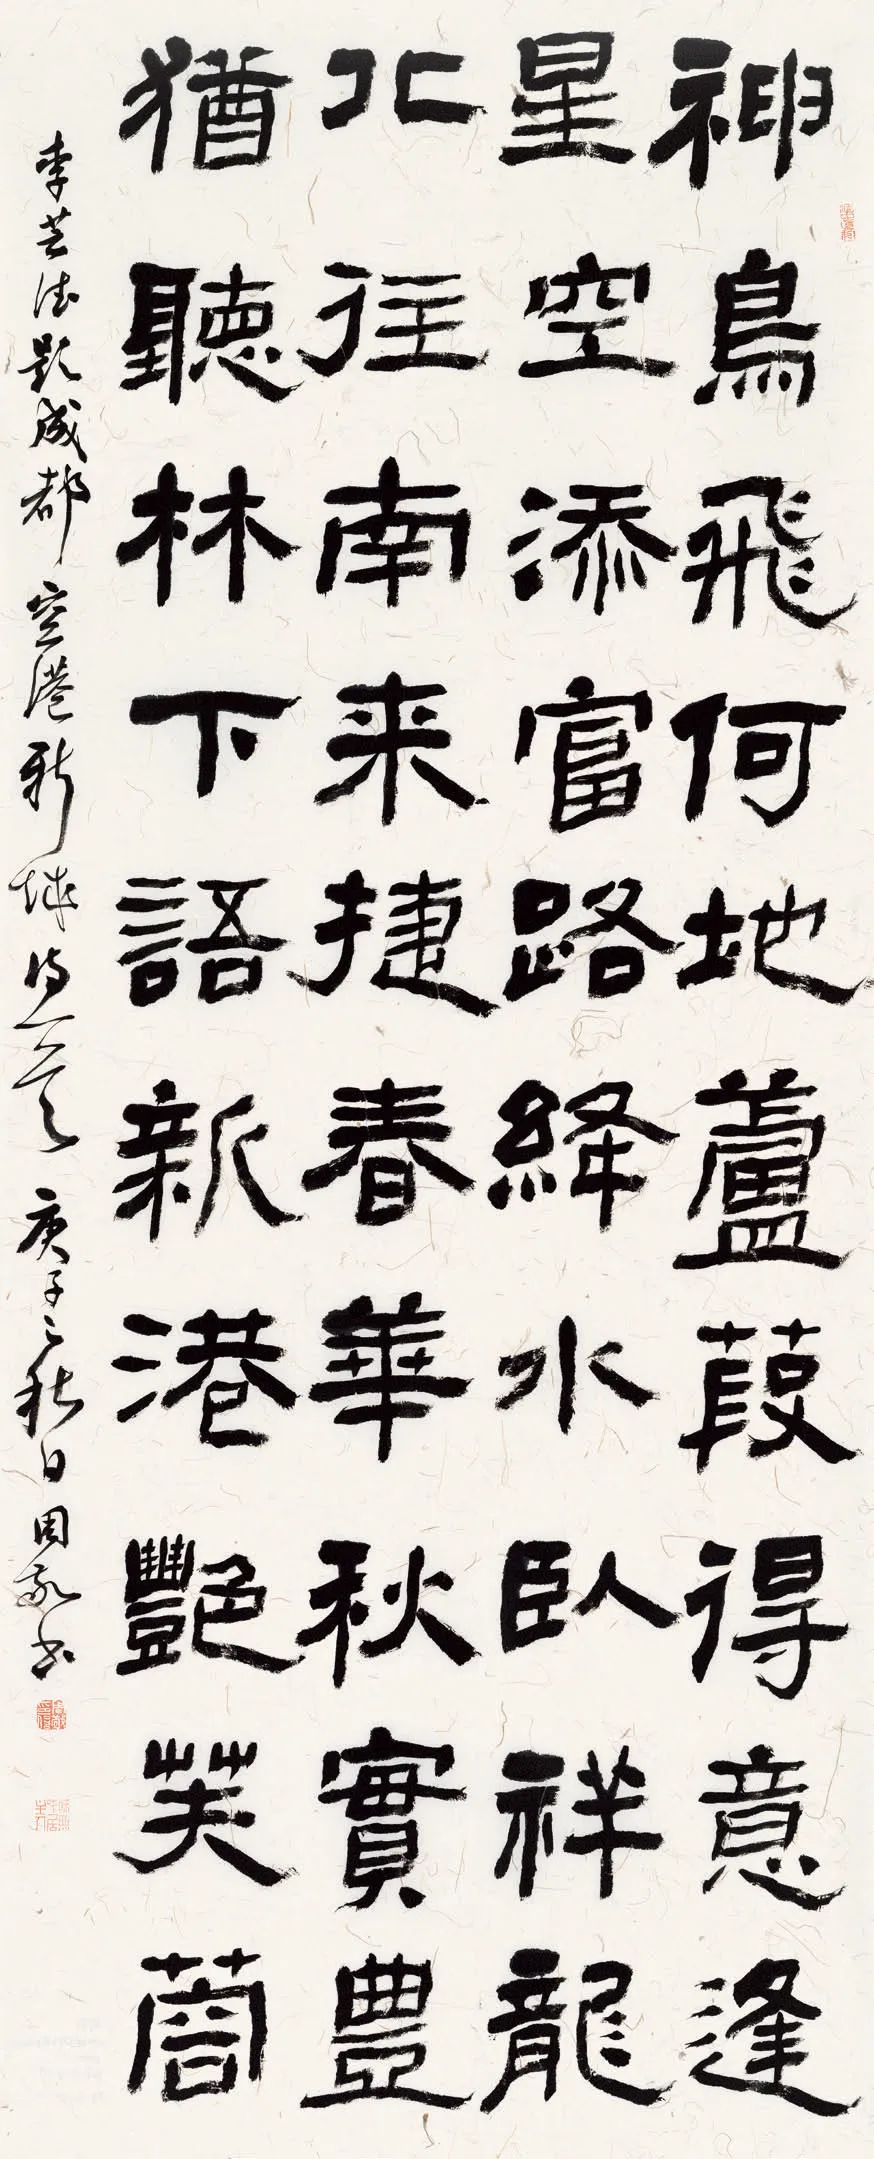 神鳥飛何地蘆葭得意逢
星空添富路絳水臥祥龍
北往南来捷春華秋實豐
猶聽林下語新港艷芙蓉
李芸德题成都空港新城诗一首 庚子之秋日周敬书